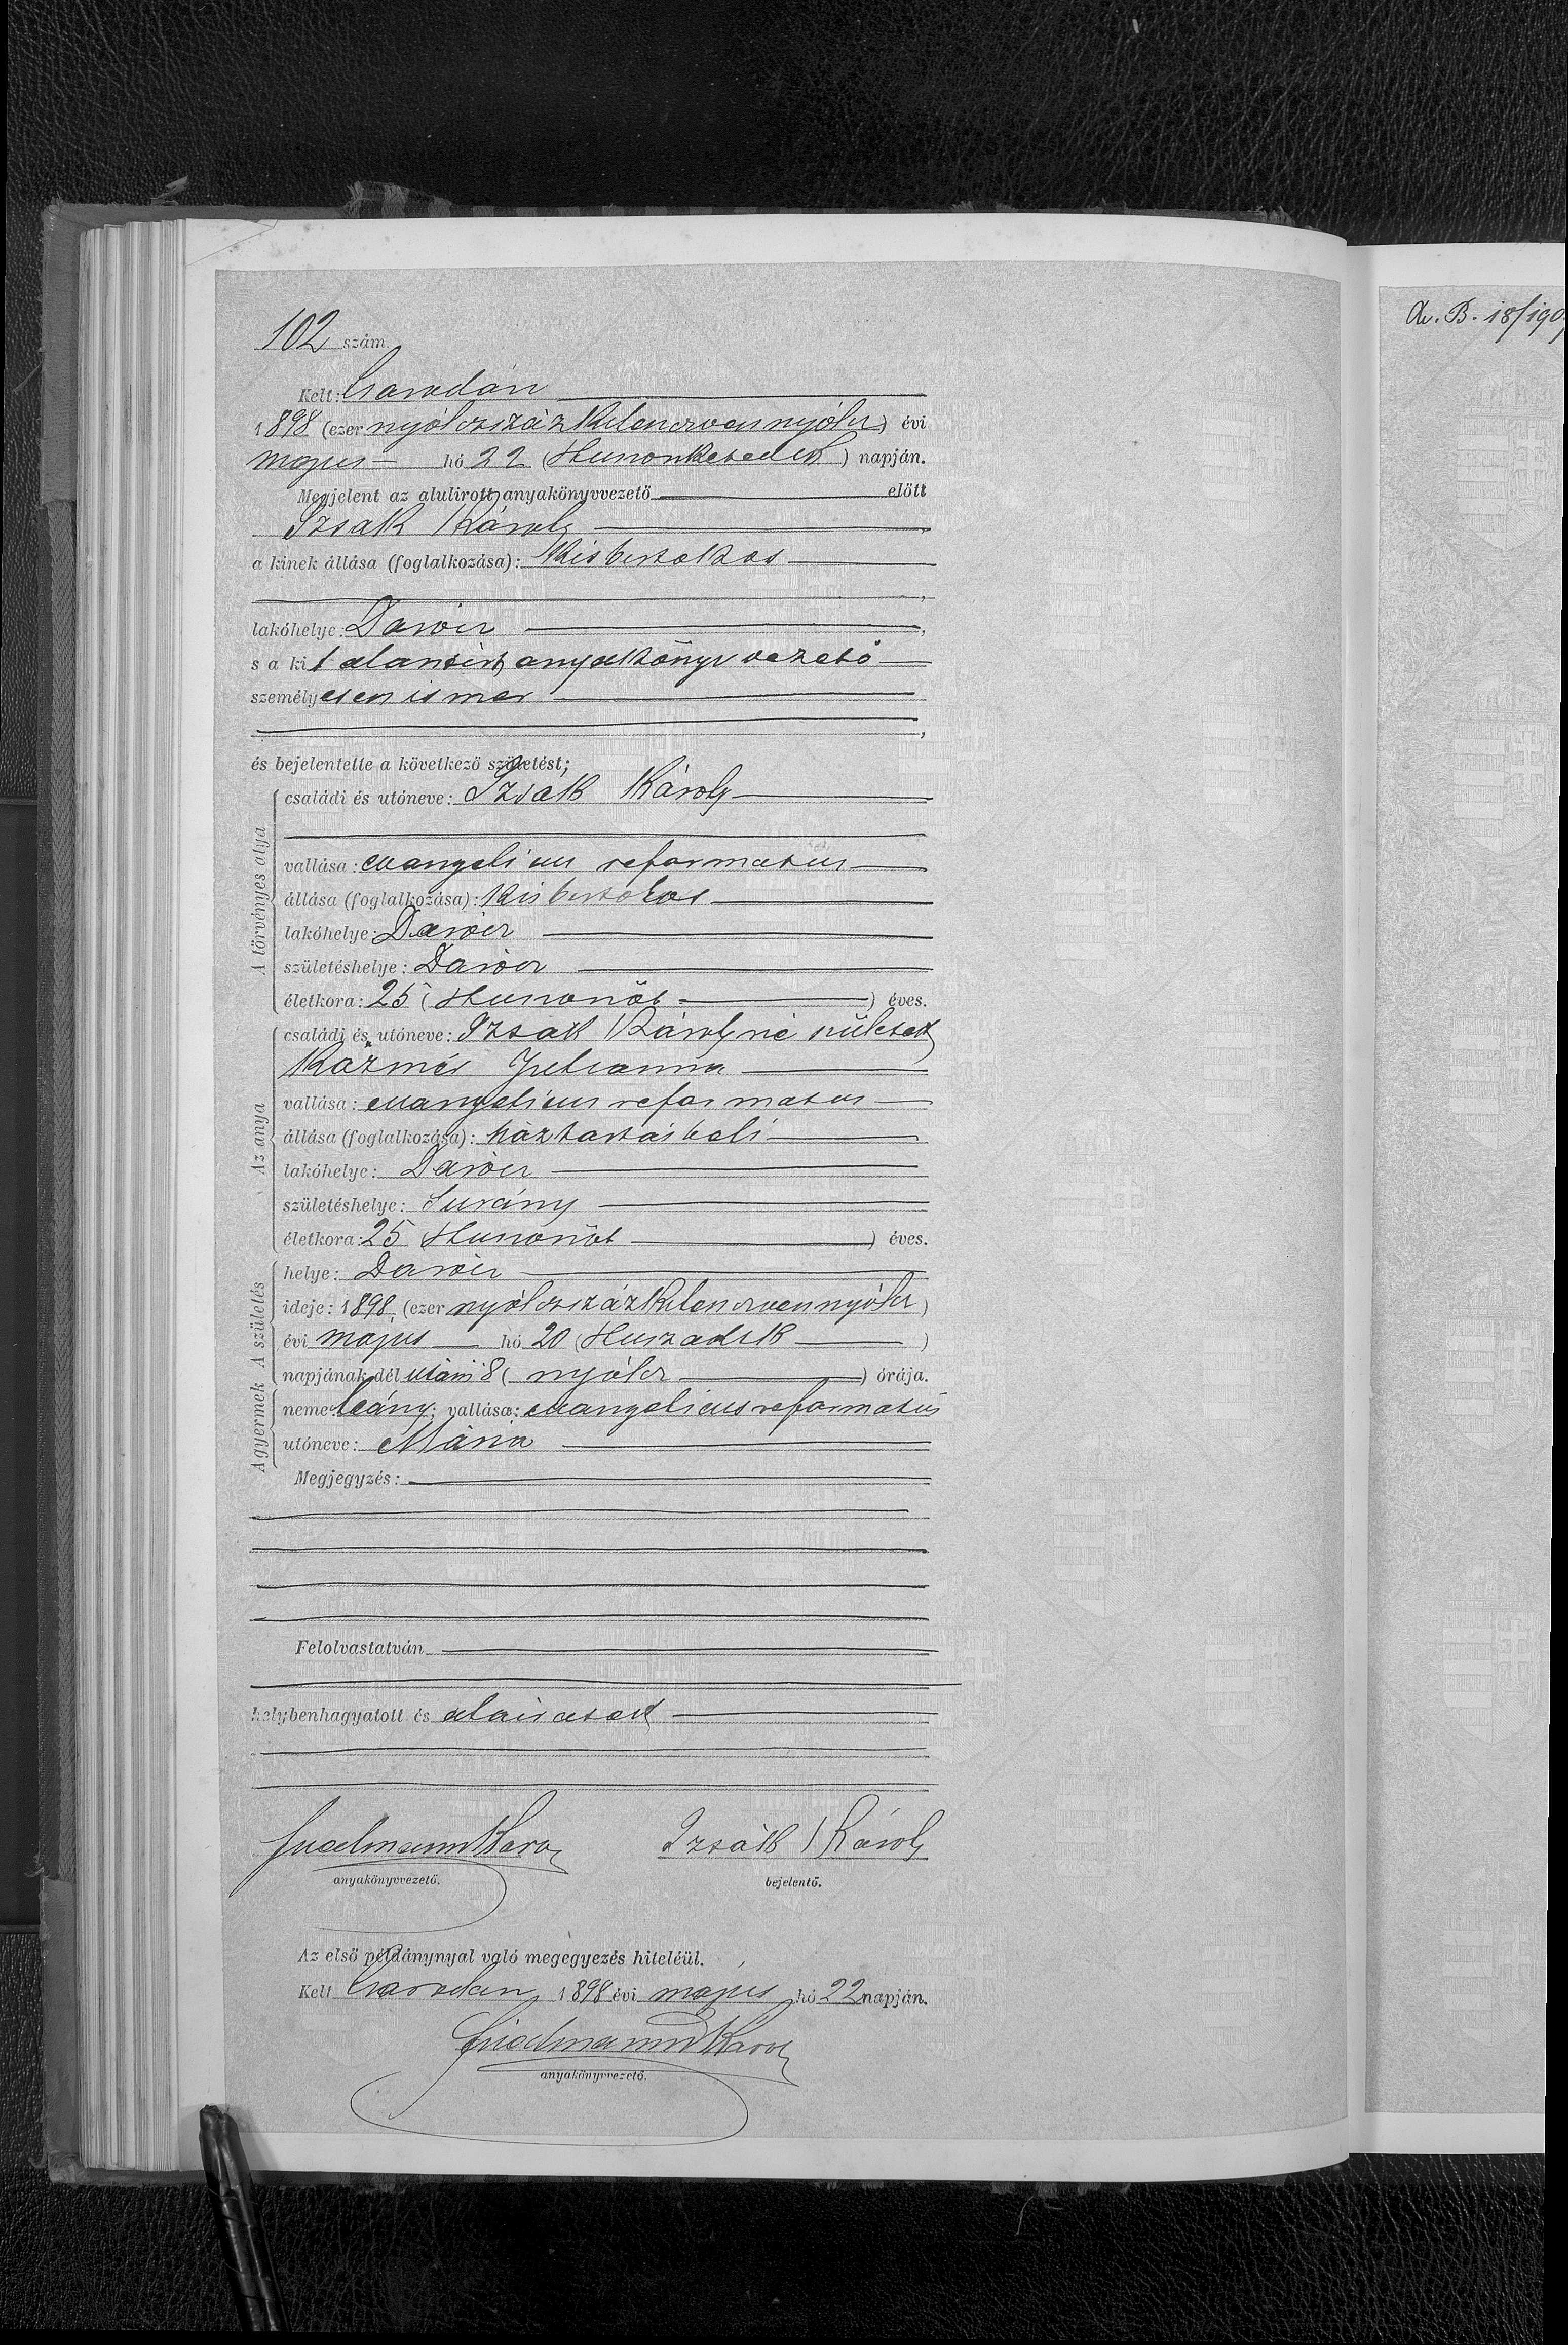 102 szám.
Av. B. 18/190
Kelt: Csarodán
1898 (ezer nyólczszázkilenczvennyólcz) évi
majus hó 22 (Huszonkettedik) napján.
Megjelent az alulirott anyakönyvvezető előtt
Izsak Károly
a kinek állása (foglalkozása): Kisbirtokos
lakóhelye: Darócz
s a kit alantirt anyakönyvvezető
személyesen ismer
és bejelentette a következő születést;
A törvényes atya
családi és utóneve: Izsak Károly
vallása: evangelicus reformatus
állása (foglalkozása): Kisbirtokos
lakóhelye: Darócz
születéshelye: Darócz
életkora: 25 (Huszonöt) éves.
Az anya
családi és utóneve: Izsak Károlyné született
Kázmér Julianna
vallása: evangelicus reformatus
állása (foglalkozása): háztartásbeli
lakóhelye: Darócz
születéshelye: Surány
életkora: 25 Huszonöt) éves.
A születés
helye: Darócz
ideje: 1898. (ezer nyólczszázkilenczvennyólcz)
évi majus hó 20 (Huszadik)
napjának dél utáni 8 (nyólcz) órája.
A gyermek
neme: leány; vallása: evangelicus reformatus
utóneve: Mária
Megjegyzés:
Felolvastatván
helybenhagyatott és aláiratott
Izsák Károly
anyakönyvvezető. bejelentő.
Az első példánynyal való megegyezés hiteléül.
Kelt Csarodán 1898 évi majus hó 22 napján.
anyakönyvvezető.